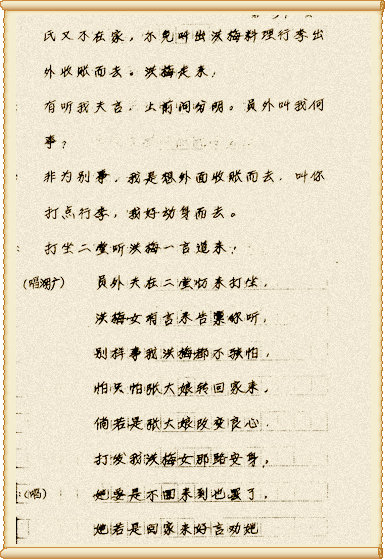 氏又不在家，不免叫出洪梅料理行李出
外收账而去。洪梅走来，
有听我夫言，上前问分明。員外叫我何
事？
非为别事，我是想外面收账而去，叫你
打点行李，我好动身而去。
打坐二堂听洪梅一言道来！
（唱湖广） 員外夫在二堂忙来打坐，
洪梅女有言来告禀你听，
别样事我洪梅都不挨怕，
怕只怕张大娘转回家来，
倘若是张大娘改变良心，
打发我洪梅女那路安身，
（唱） 她要是不回来到也罢了，
她若是回家来好言劝她